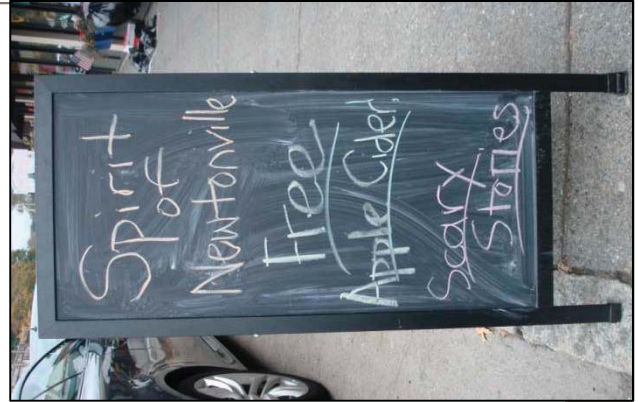 Spirit
of
Newtonville
Free
Apple Cider!
Scary
Stories